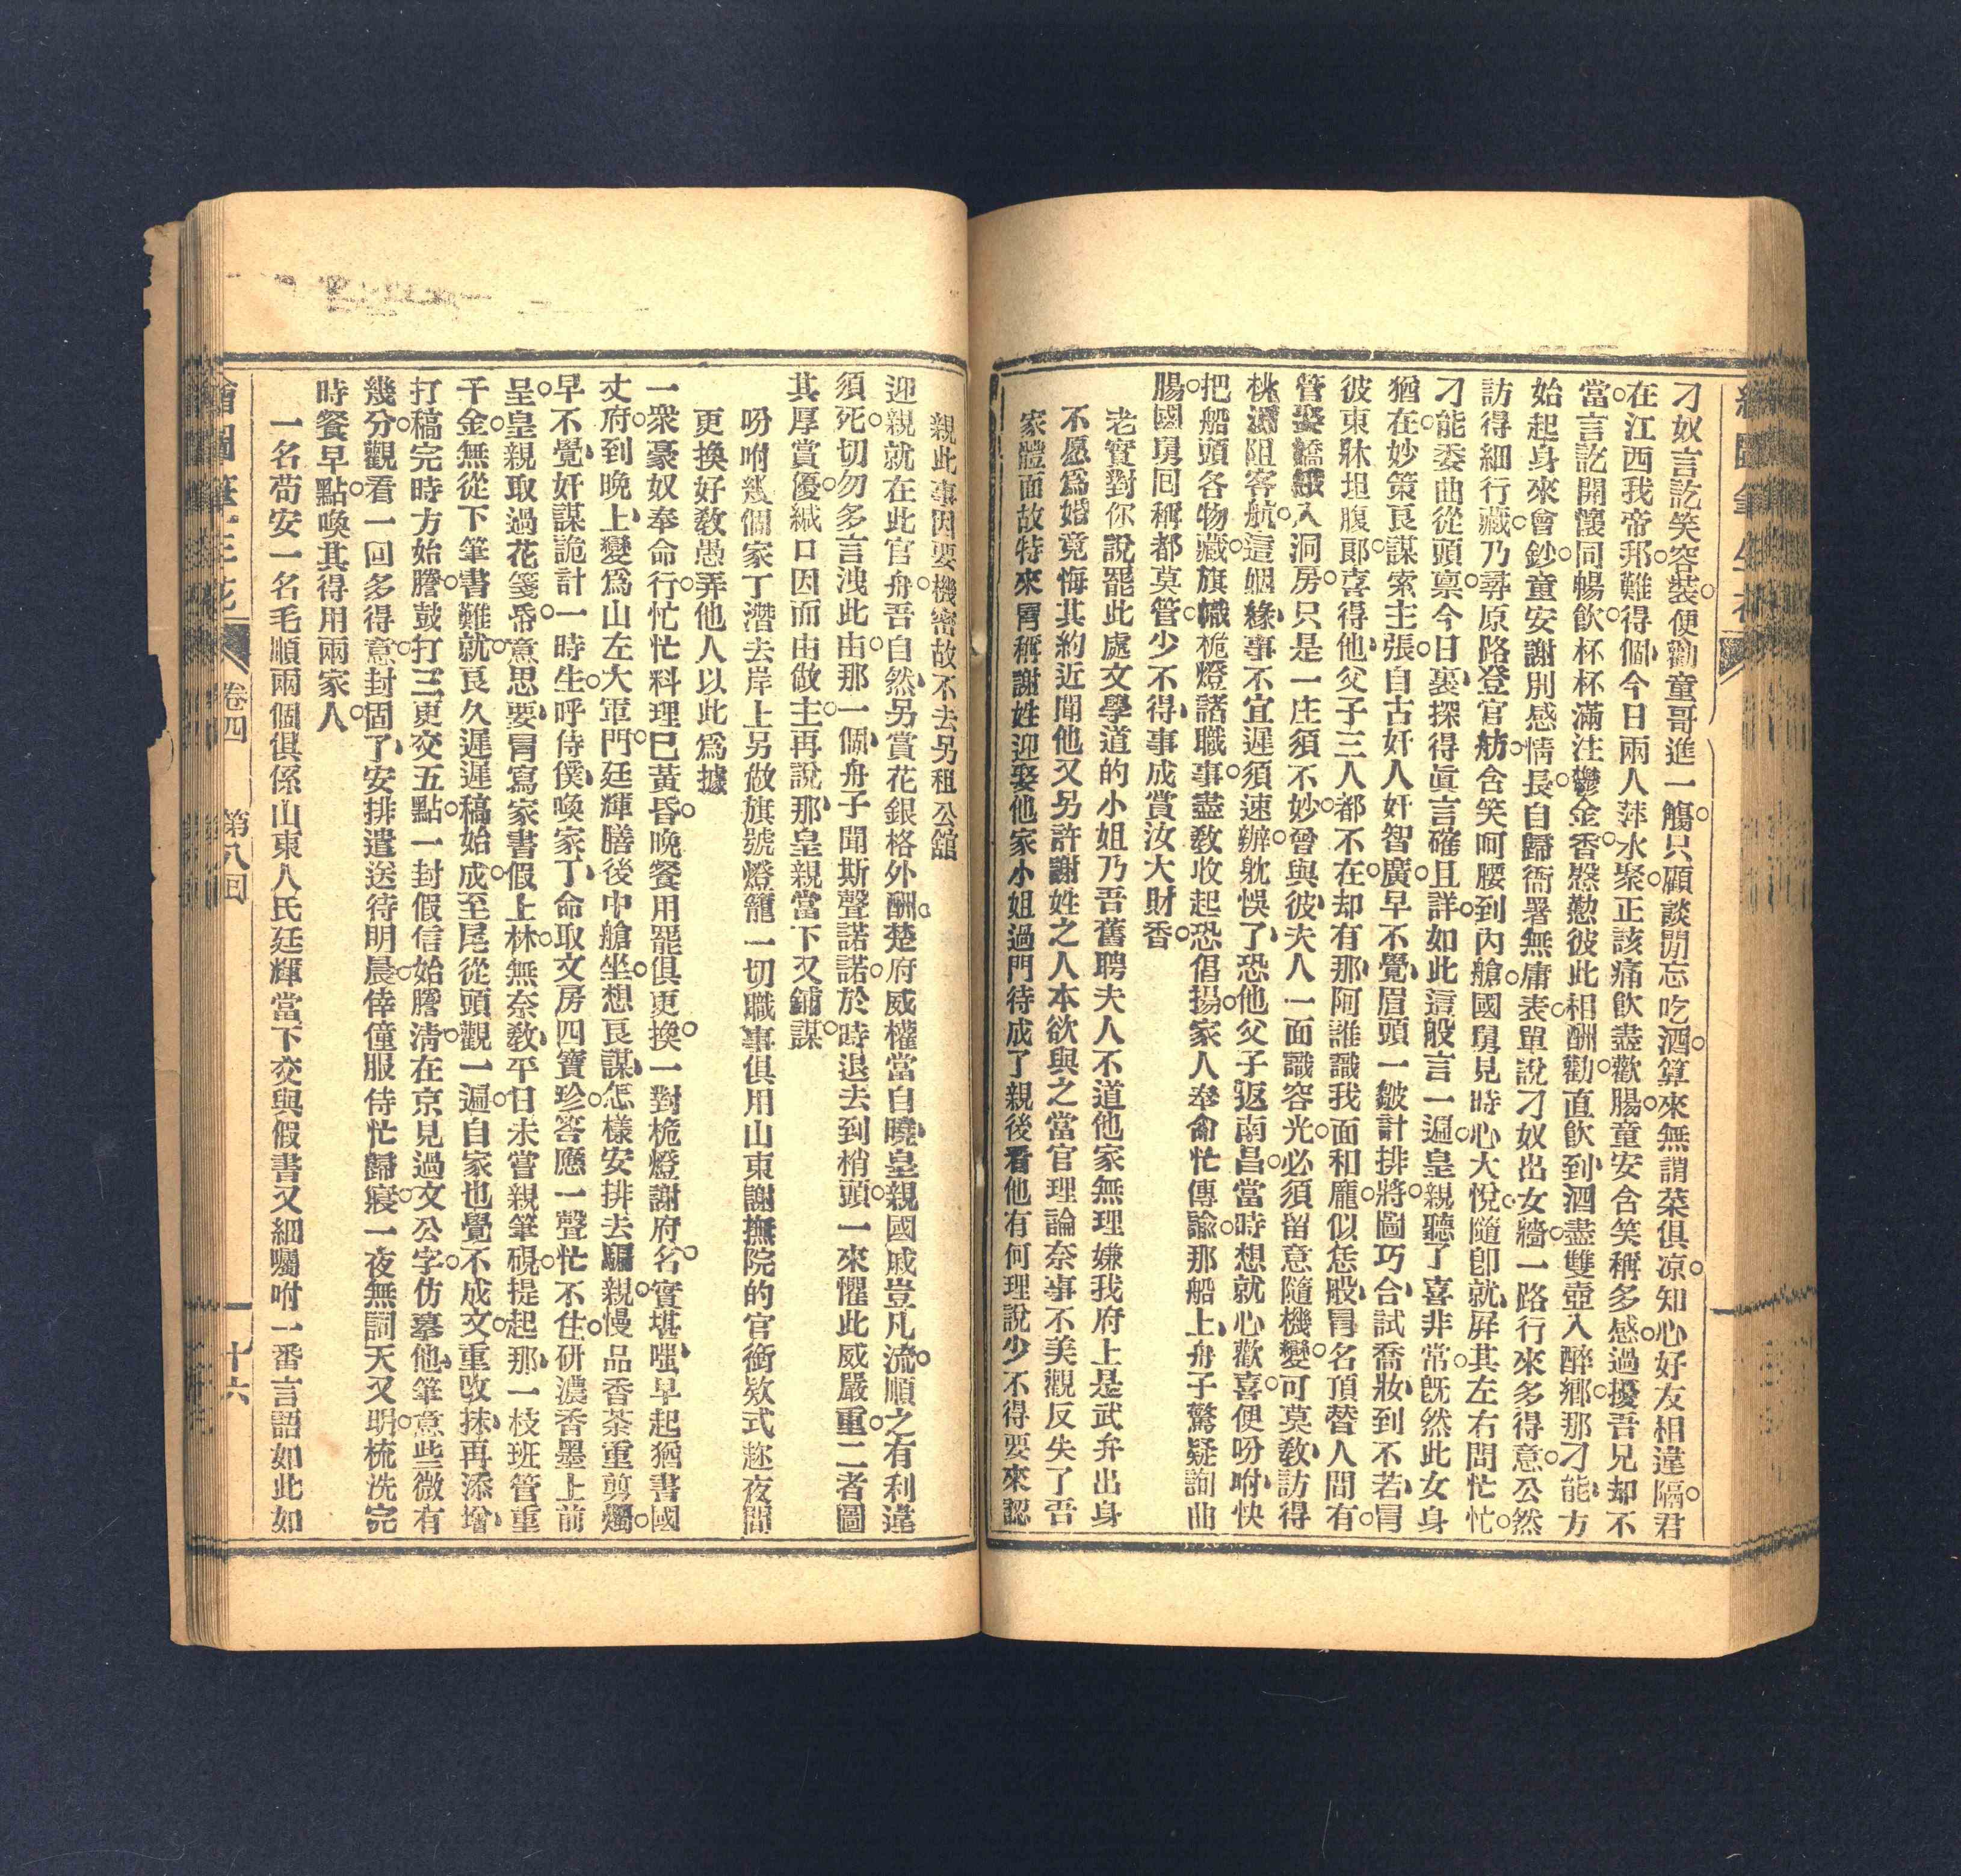 刁奴言訖笑容裝。便勸童哥進一觴。只顧談閒忘吃酒。算來無謂菜俱凉。知心好友相違隔。君
在江西我帝邦。難得個、今日兩人萍水聚。正該痛飲盡歡腸。童安含笑稱多感。過擾吾兄却不
當。言訖開懷同暢飲。杯杯滿注鬱金香。慇懃彼此相酬勸。直飲到、酒盡雙壺入醉鄉。那刁能、方
始起身來會鈔。童安謝別感情長。自歸衙署無庸表。單說刁奴出女牆。一路行來多得意。公然
訪得細行藏。乃尋原路登官舫。含笑呵腰到內艙。國舅見時心大悅。隨即就、屏其左右問忙忙。
刁能委曲從頭禀。今日裏、探得眞言確且詳。如此這般言一遍。皇親聽了喜非常。旣然此女身
猶在。妙策良謀索主張。自古奸人奸智廣。早不覺、眉頭一皺計排將。圖巧合、試喬妝。到不若、冐
彼東牀坦腹郎。喜得他、父子三人都不在。却有那、阿誰識我面和龐。似恁般、冐名頂替人間有。
管娶嬌娥入洞房。只是一庄須不妙。曾與彼、夫人一面識容光。必須留意隨機變。可莫敎、訪得
桃源阻客航。這姻緣、事不宜遲須速辦。躭悞了、恐他父子返南昌。當時想就心歡喜。便吩咐、快
把船頭各物藏。旗幟桅燈諸職事。盡敎收起恐倡揚。家人奉命忙傳諭。那船上、舟子驚疑詢曲
腸。國舅回稱都莫管。少不得、事成賞汝大財香。
老實對你說罷此處文學道的小姐乃吾舊聘夫人不道他家無理嫌我府上是武弁出身
不愿爲婚竟悔其約近聞他又另許謝姓之人本欲與之當官理論奈事不美觀反失了吾
家體面故特來冐稱謝姓迎娶他家小姐過門待成了親後看他有何理說少不得要來認
親此事因要機密故不去另租公舘
迎親就在此官舟。吾自然、另賞花銀格外酬。楚府威權當自曉。皇親國戚豈凡流。順之有利違
須死。切勿多言洩此由。那一個、舟子聞斯聲諾諾。於時退去到梢頭。一來懼此威嚴重。二者圖
其厚賞優。緘口因而由做主。再說那、皇親當下又鋪謀。
吩咐幾個家丁潛去岸上另做旗號燈籠一切職事俱用山東謝撫院的官銜欵式趂夜間
更換好敎愚弄他人以此爲據
一衆豪奴奉命行。忙忙料理已黃昏。晚餐用罷俱更換。一對桅燈謝府名。實堪嗤、早起猶書國
丈府。到晚上、變爲山左大軍門。廷輝膳後中艙坐。想良謀、怎樣安排去騙親。慢品香茶重剪燭。
早不覺、奸謀詭計一時生。呼侍僕、喚家丁、命取文房四寶珍。答應一聲忙不住。研濃香墨上前
呈。皇親取過花箋帋。意思要、冐寫家書假上林。無奈敎、平日未嘗親筆硯。提起那、一枝班管重
千金。無從下筆書難就。良久遲遲稿始成。至尾從頭觀一遍。自家也覺不成文。重改抹、再添增、
打稿完時方始謄。鼓打三更交五點。一封假信始謄淸。在京見過文公字。仿摹他、筆意些微有
幾分。觀看一回多得意。封固了、安排遣送待明晨。倖僮服侍忙歸寢。一夜無詞天又明。梳洗完
時餐早點。喚其得用兩家人。
一名茍安一名毛順兩個俱係山東人氏廷輝當下交與假書又細囑咐一番言語如此如
卷四 第八回 十六